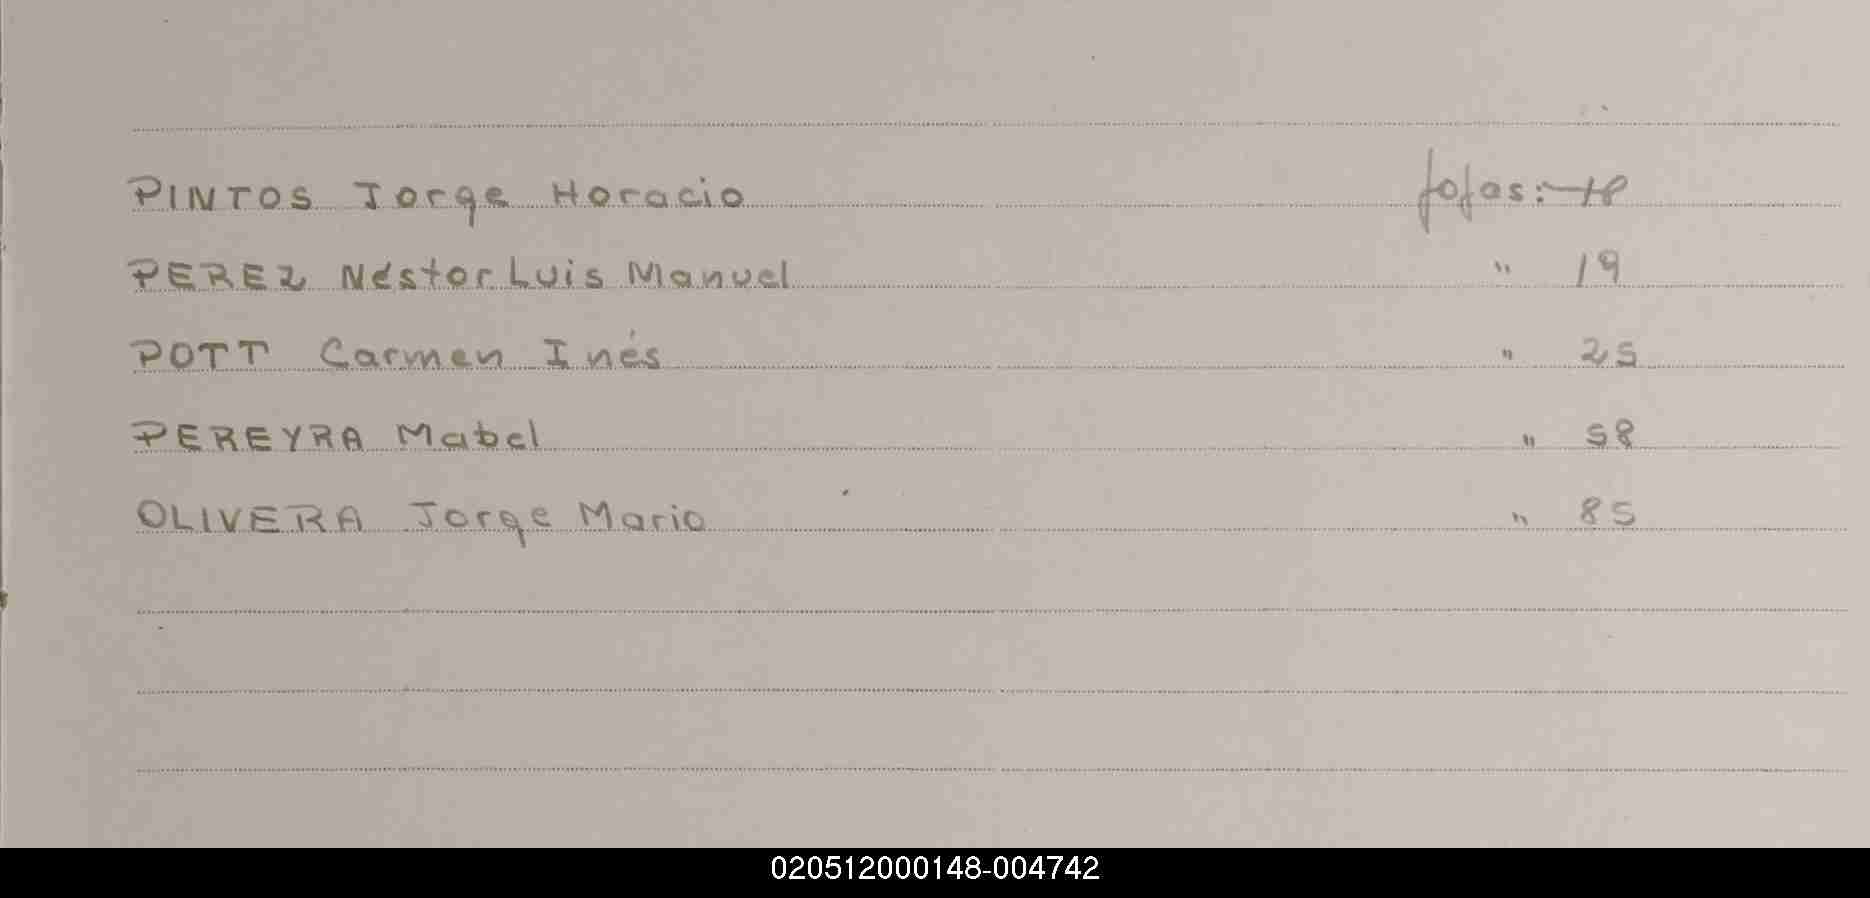 PINTOS Jorge Horacio fojas: 18
PEREZ Néstor Luis Manuel " 19
POTT Carmen Inés " 25
PEREYRA Mabel " 58
OLIVERA Jorge Mario " 85
020512000148-004742